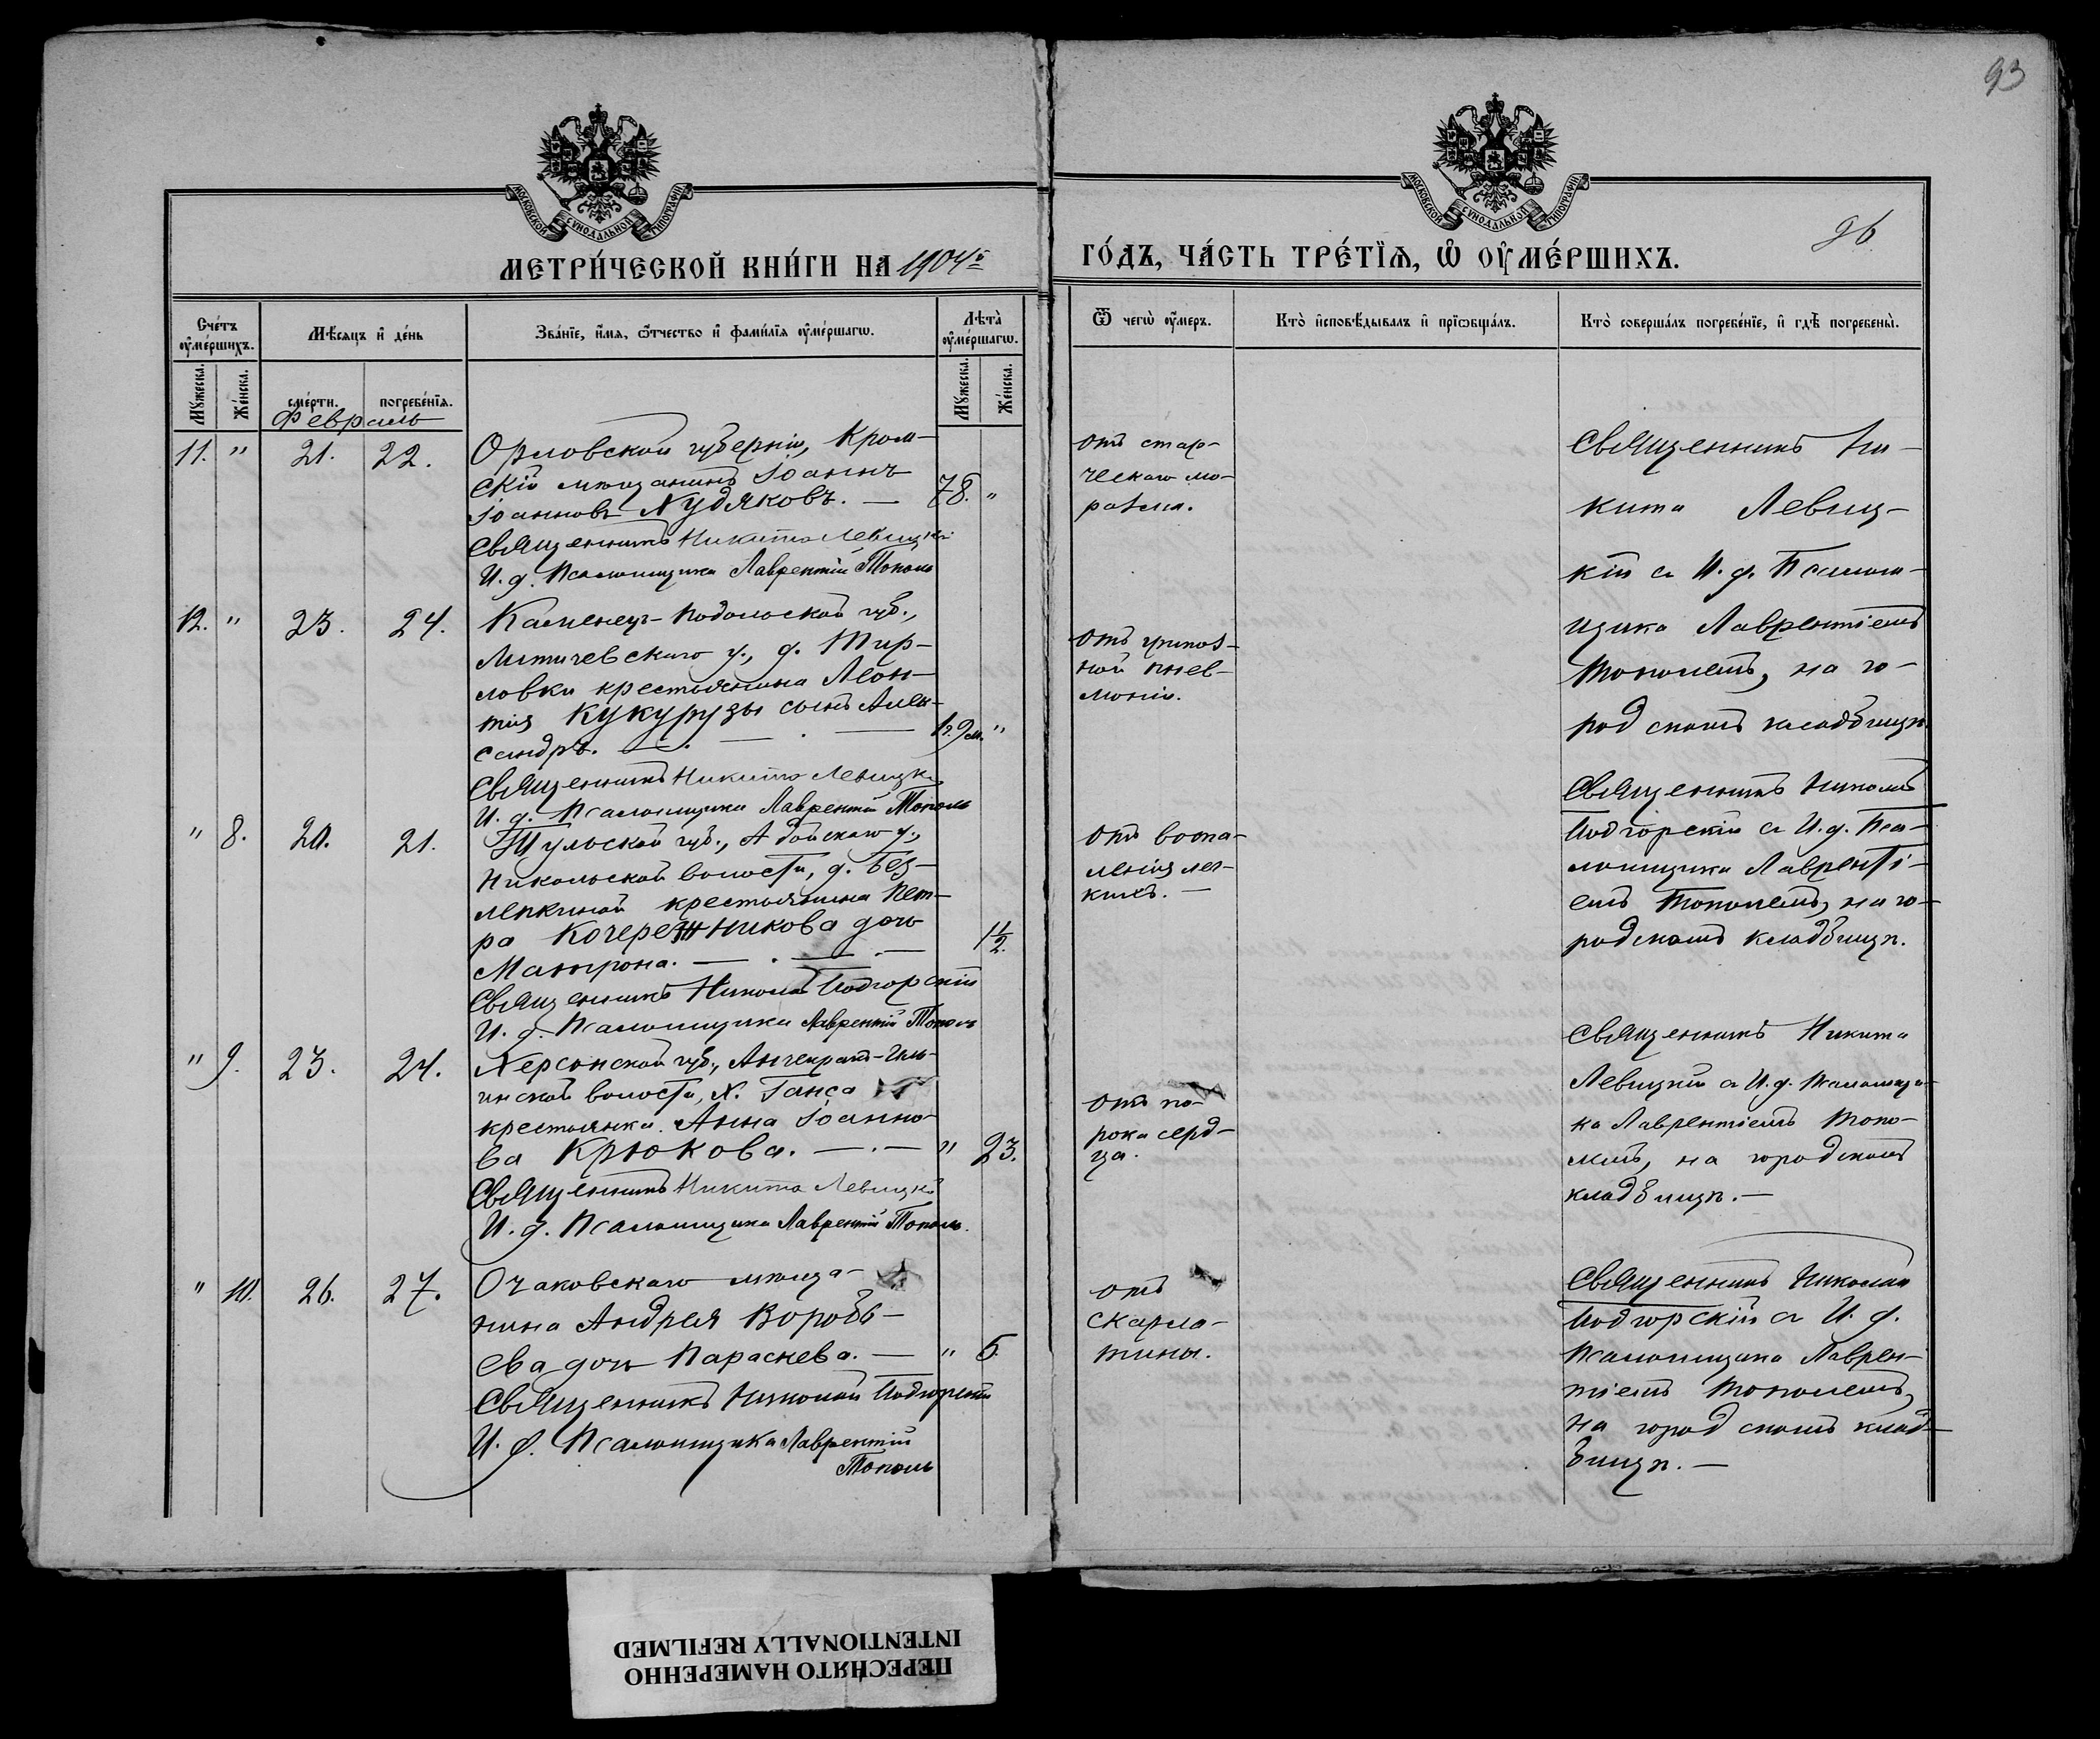 93
МОСКОВСКОЙ СУНОДАЛЬНОЙ ТИПОГРАФІИ
МОСКОВСКОЙ СУНОДАЛЬНОЙ ТИПОГРАФІИ
МЕТРИ́ЧЕСКОЙ КНИ́ГИ НА 1904й
ГО́ДЪ, ЧА́СТЬ ТРЕ́ТІЯ, Ѡ҆ ОУ҆МЕ́РШИХЪ.
96
Сче́тъ оу҆ме́ршихъ.
Мѣ́сяцъ и҆ де́нь
Зва́нїе, и҆́мя, ѻ҆́тчество и҆ фами́лїя оу҆ме́ршагѡ.
Лѣта̀ оу҆ме́ршагѡ.
Ѿ чегѡ̀ оу҆́меръ.
Кто̀ и҆сповѣ́дывалъ и҆ прїѡбща́лъ.
Кто̀ соверша́лъ погребе́нїе, и҆ гдѣ̀ погребены̀.
Му́жеска.
Же́нска.
сме́рти.
погребе́нїя.
Му́жеска.
Же́нска.
Февраль
11. " 21. 22.
Орловской губерніи, Кром-
скій мѣщанинъ Іоаннъ
Іоанновъ Худяковъ. — 78. "
Священникъ Никита Левицкій
И. д. Псаломщика Лаврентій Тополь
отъ стар-
ческаго ма-
разма.
Священникъ Ни-
кита Левиц-
кій съ И. д. Псалом-
щика Лаврентіемъ
Тополемъ, на го-
родскомъ кладбищѣ.
12. " 23. 24.
Каменец-Подольской губ.,
Литичевскаго у., д. Тир-
ловки крестьянина Леон-
тія Кукурузы сынъ Алек-
сандръ. — 9 м. "
Священникъ Никита Левицкій
И. д. Псаломщика Лаврентій Тополь
Отъ грипоз-
ной пнев-
моніи.
" 8. 20. 21.
Тульской губ., у.,
Никольской волости, д. Без-
лепкиной крестьянина Пет-
ра Кочережникова дочь
Матрона. — 1½.
Священникъ Николай Подгорскій
И. д. Псаломщика Лаврентій Тополь
Отъ воспа-
ленія лег-
кихъ. —
Священникъ Николай
Подгорскій съ И. д. Пса-
ломщика Лавренті-
емъ Тополемъ, на го-
родскомъ кладбищѣ.
" 9. 23. 24.
Херсонской губ., Анчекрак-Иль-
инской волости, х. Ганса
крестьянка Анна Іоанно-
ва Крюкова. — " 23.
Священникъ Никита Левицкій
И. д. Псаломщика Лаврентій Тополь.
Отъ по-
рока серд-
ца.
Священникъ Никита
Левицкій съ И. д. Псаломщи-
ка Лаврентіемъ Топо-
лемъ, на городскомъ
кладбищѣ. —
" 10. 26. 27.
Очаковскаго мѣща-
нина Андрея Воробь-
ева дочь Параскева. — " 5.
Священникъ Николай Подгорскій
И. д. Псаломщика Лаврентій
Тополь
отъ
скарла-
тины.
Священникъ Николай
Подгорскій съ И. д.
Псаломщика Лаврен-
тіемъ Тополемъ,
на городскомъ клад-
бищѣ. —
ПЕРЕСНЯТО НАМЕРЕННО
INTENTIONALLY REFILMED